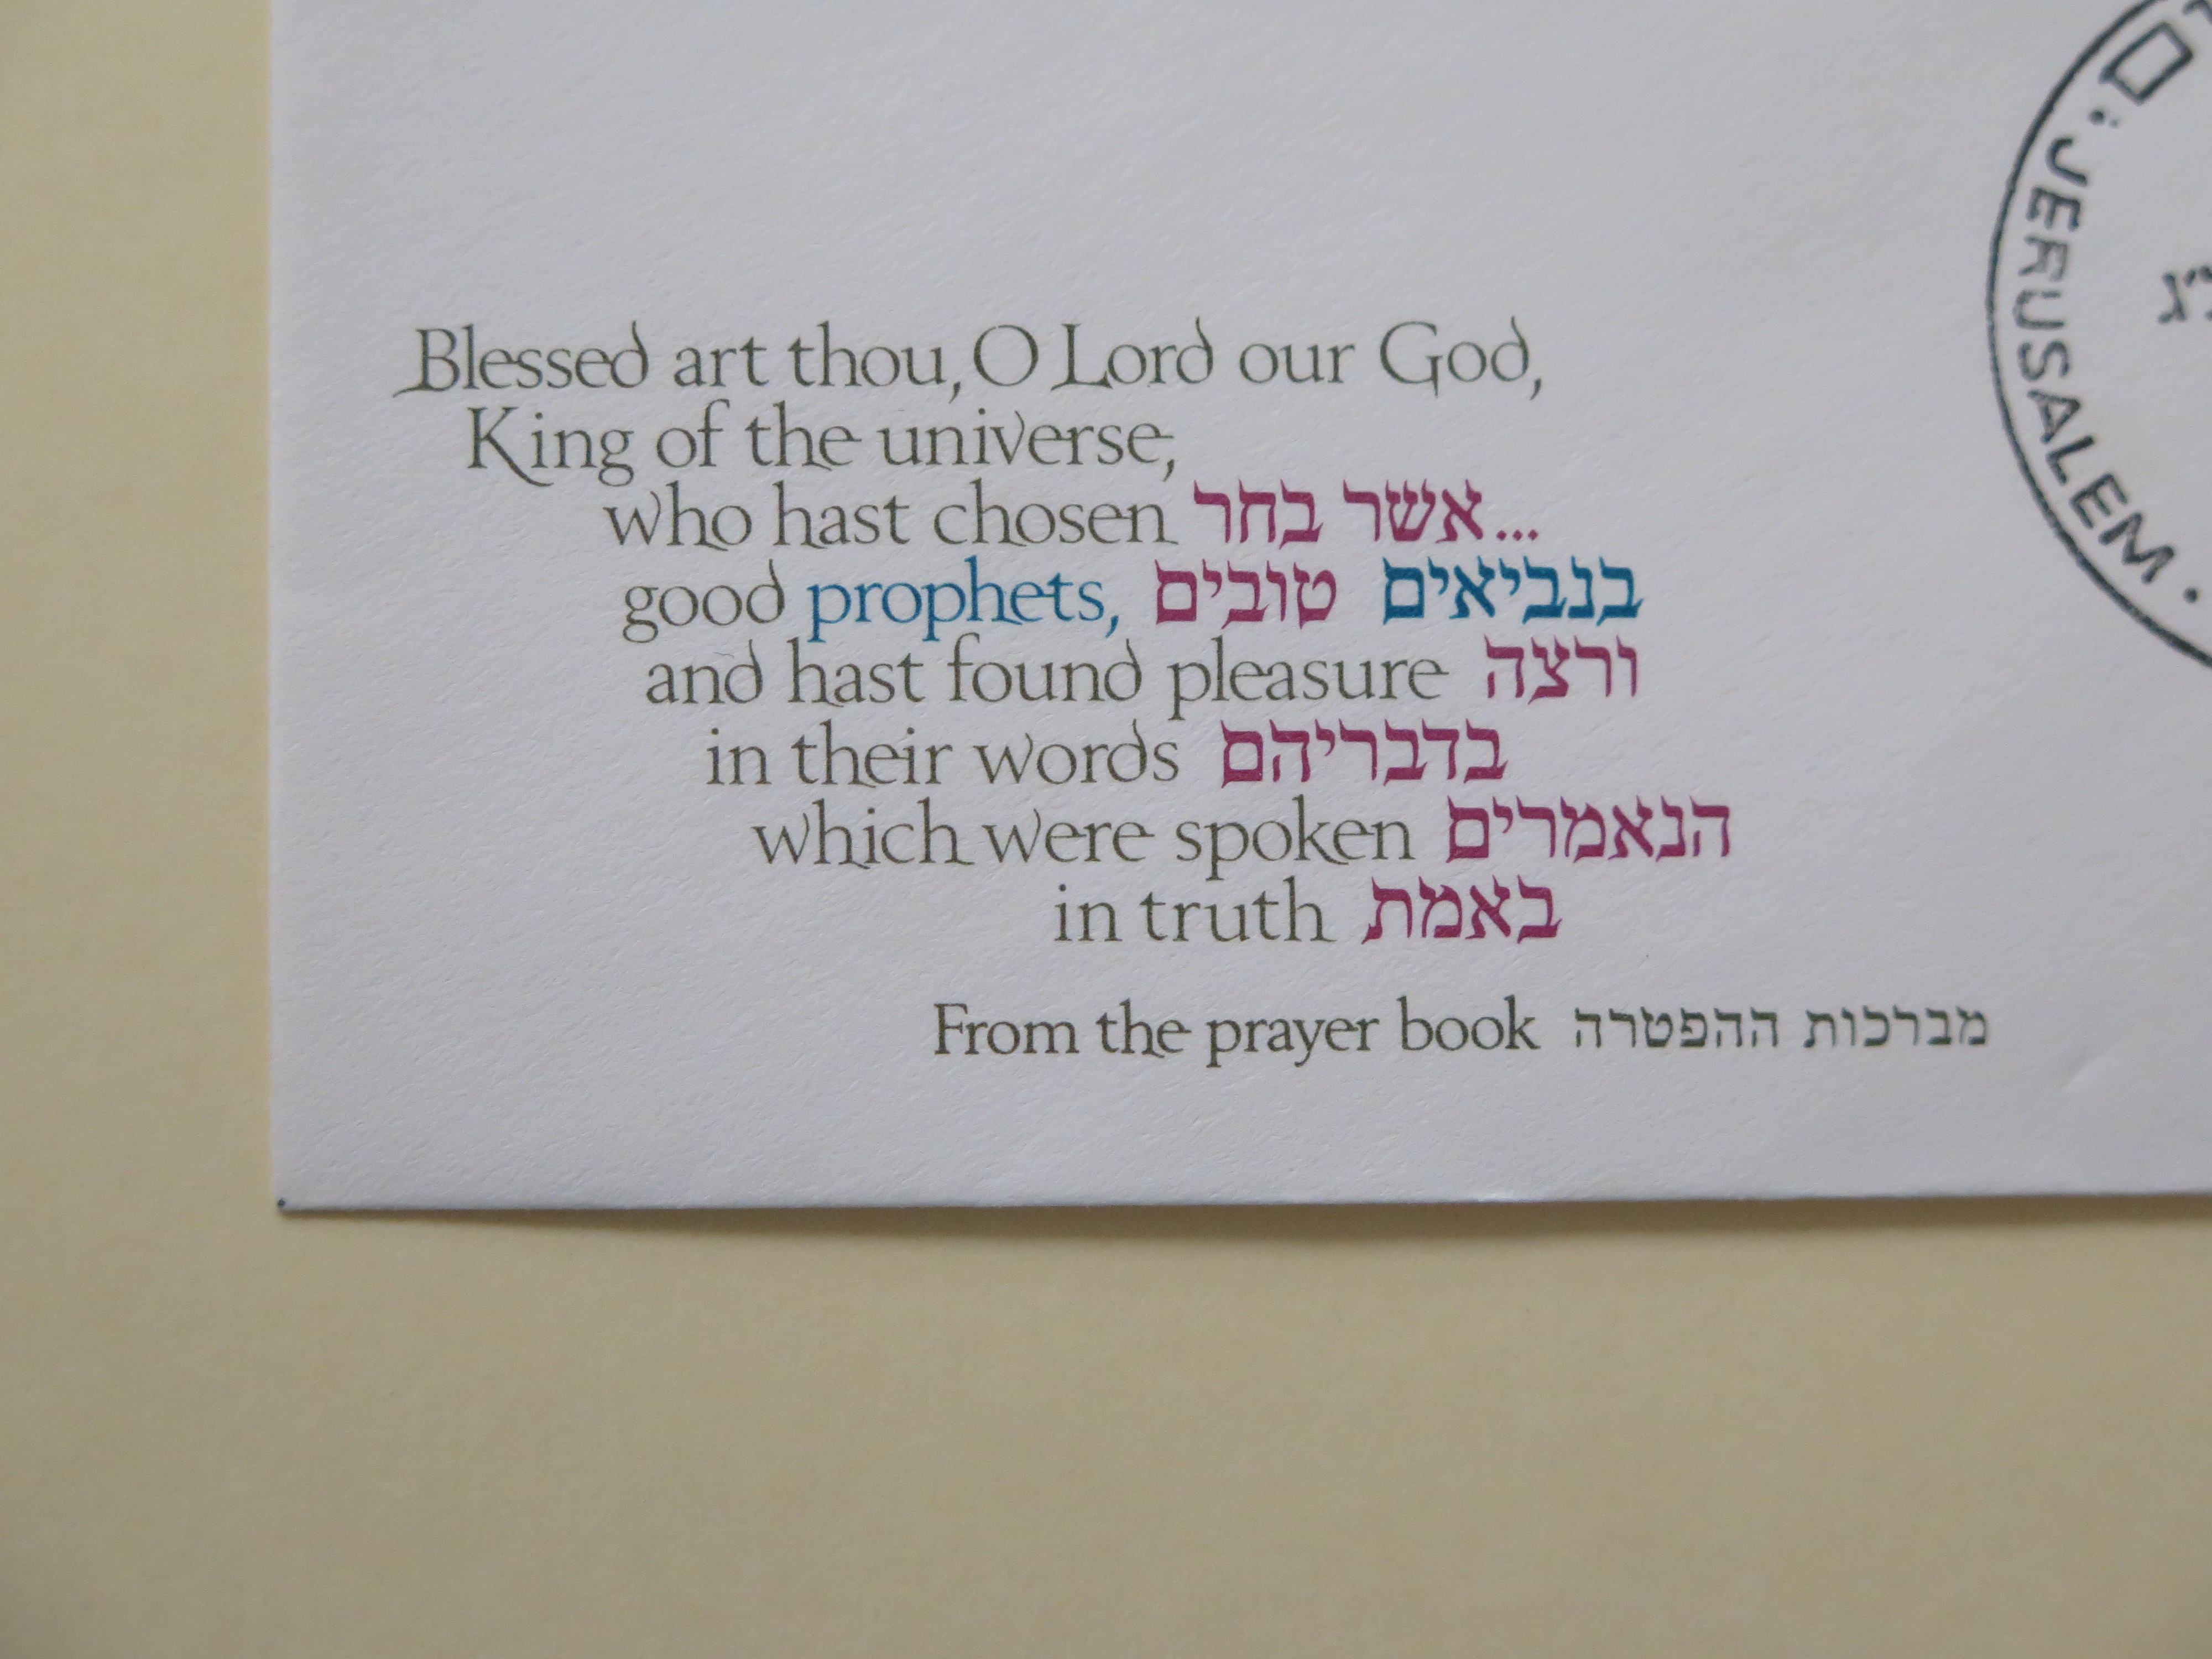 Blessed art thou, O Lord our God,
King of the universe,
who hast chosen אשר בחר...
good prophets, בנביאים טובים
and hast found pleasure ורצה
in their words בדבריהם
which were spoken הנאמרים
in truth באמת
From the prayer book מברכות ההפטרה
JERUSALEM